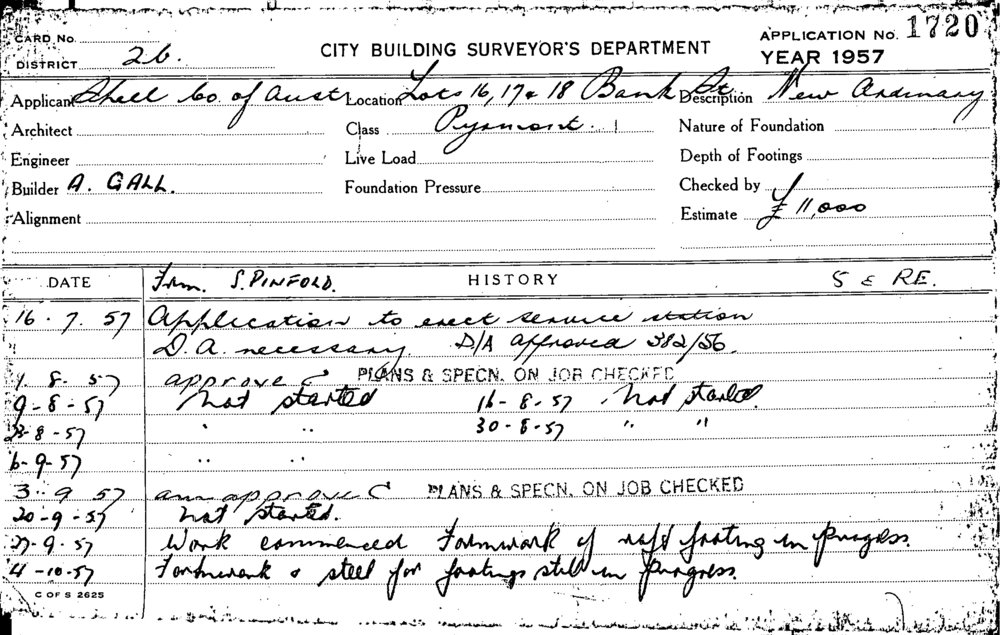 CARD No.
DISTRICT 26.
CITY BUILDING SURVEYOR'S DEPARTMENT
APPLICATION No. 1720
YEAR 1957
Applicant Shell Co. of Aust Location Lots 16, 17 & 18 Bank St. Description New Ordinary
Architect Class Pyrmont. Nature of Foundation
Engineer Live Load Depth of Footings
Builder A. GALL. Foundation Pressure Checked by
Alignment Estimate £ 11,000
DATE From. S. PINFOLD. HISTORY S & RE.
16. 7. 57 Application to erect service station
" D.A. necessary. D/A approved 382/56.
1. 8. 57 approved PLANS & SPECN. ON JOB CHECKED
9-8-57 Not started 16-8-57 Not started.
23-8-57 " " 30-8-57 " "
6-9-57 " "
3. 9 57 approved PLANS & SPECN. ON JOB CHECKED
20-9-57 Not started.
27-9-57 Work commenced Formwork of raft footing in progress.
4-10-57 Formwork & steel for footings still in progress.
C OF S 2625